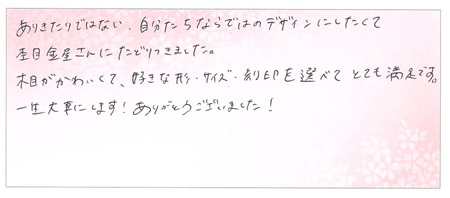 ありきたりではない、自分たちならではのデザインにしたくて
杢目金屋さんにたどりつきました。
木目がかわいくて、好きな形・サイズ・刻印を選べてとても満足です。
一生大事にします！ありがとうございました！